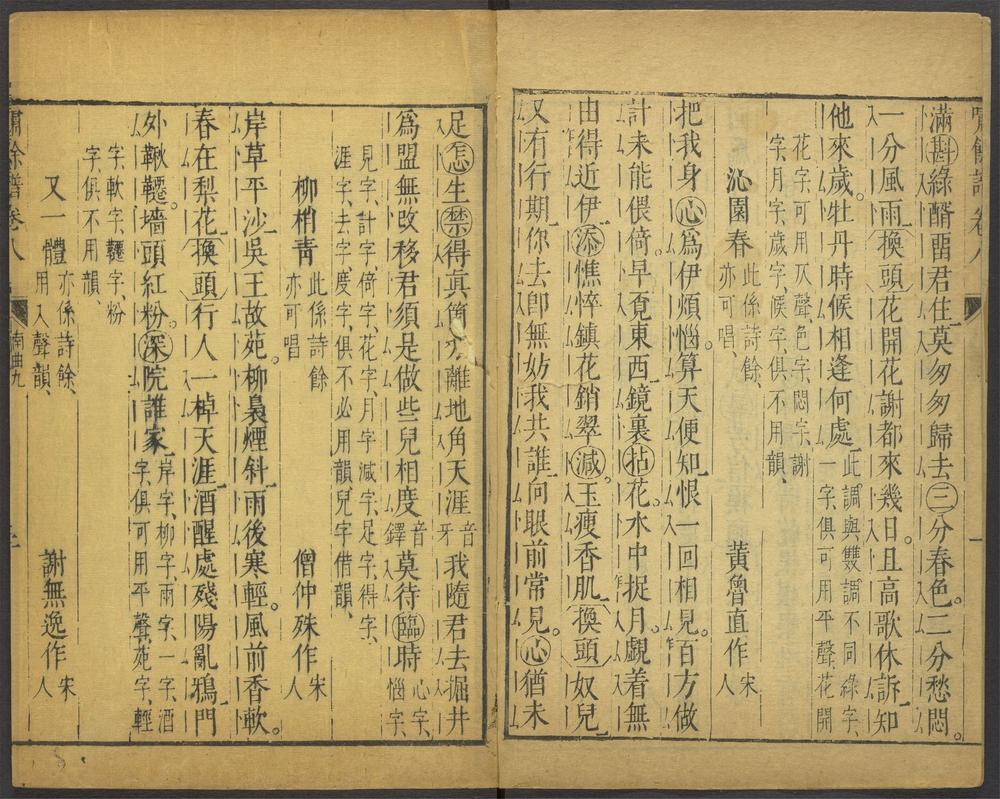 嘯餘譜 卷八 一
滿斟綠醑留君住莫匆匆歸去三分春色。二分愁悶。
一分風雨換頭花開花謝都來幾日。且高歌休訴知
他來歲。牡丹時候相逢何處此調與雙調不同綠字、一字、俱可用平聲、花開
花字、可用仄聲色字、悶字、謝
字、月字、歲字、候字、俱不用韻、
沁園春此係詩餘、亦可唱、 黃魯直作宋人
把我身心爲伊煩惱。算天便知恨一回相見。百方做
計未能偎倚。早覓東西鏡裏拈花。水中捉月。覷着無
由得近伊添憔悴鎮花銷翠減。玉瘦香肌換頭奴兒
又有行期你去卽無妨我共誰向眼前常見。心猶未
足怎生禁得眞箇分離地角天涯音牙我隨君去掘井
爲盟無改移君須是做些兒相度音鐸莫待臨時心字、惱字、
見字、計字、倚字、花字、月字、減字、足字、得字、
涯字、去字、度字、俱不必用韻、兒字借韻、
柳梢青此係詩餘亦可唱 僧仲殊作宋人
岸草平沙吳王故苑。柳裊煙斜雨後寒輕。風前香軟。
春在梨花換頭行人一棹天涯酒醒處殘陽亂鴉門
外鞦韆。墻頭紅粉。深院誰家岸字、柳字、雨字、一字、酒字、俱可用平聲、苑字、輕
字、軟字、韆字、粉
字、俱不用韻
又一體亦係詩餘、用入聲韻、 謝無逸作宋人
嘯餘譜 卷八 南曲九